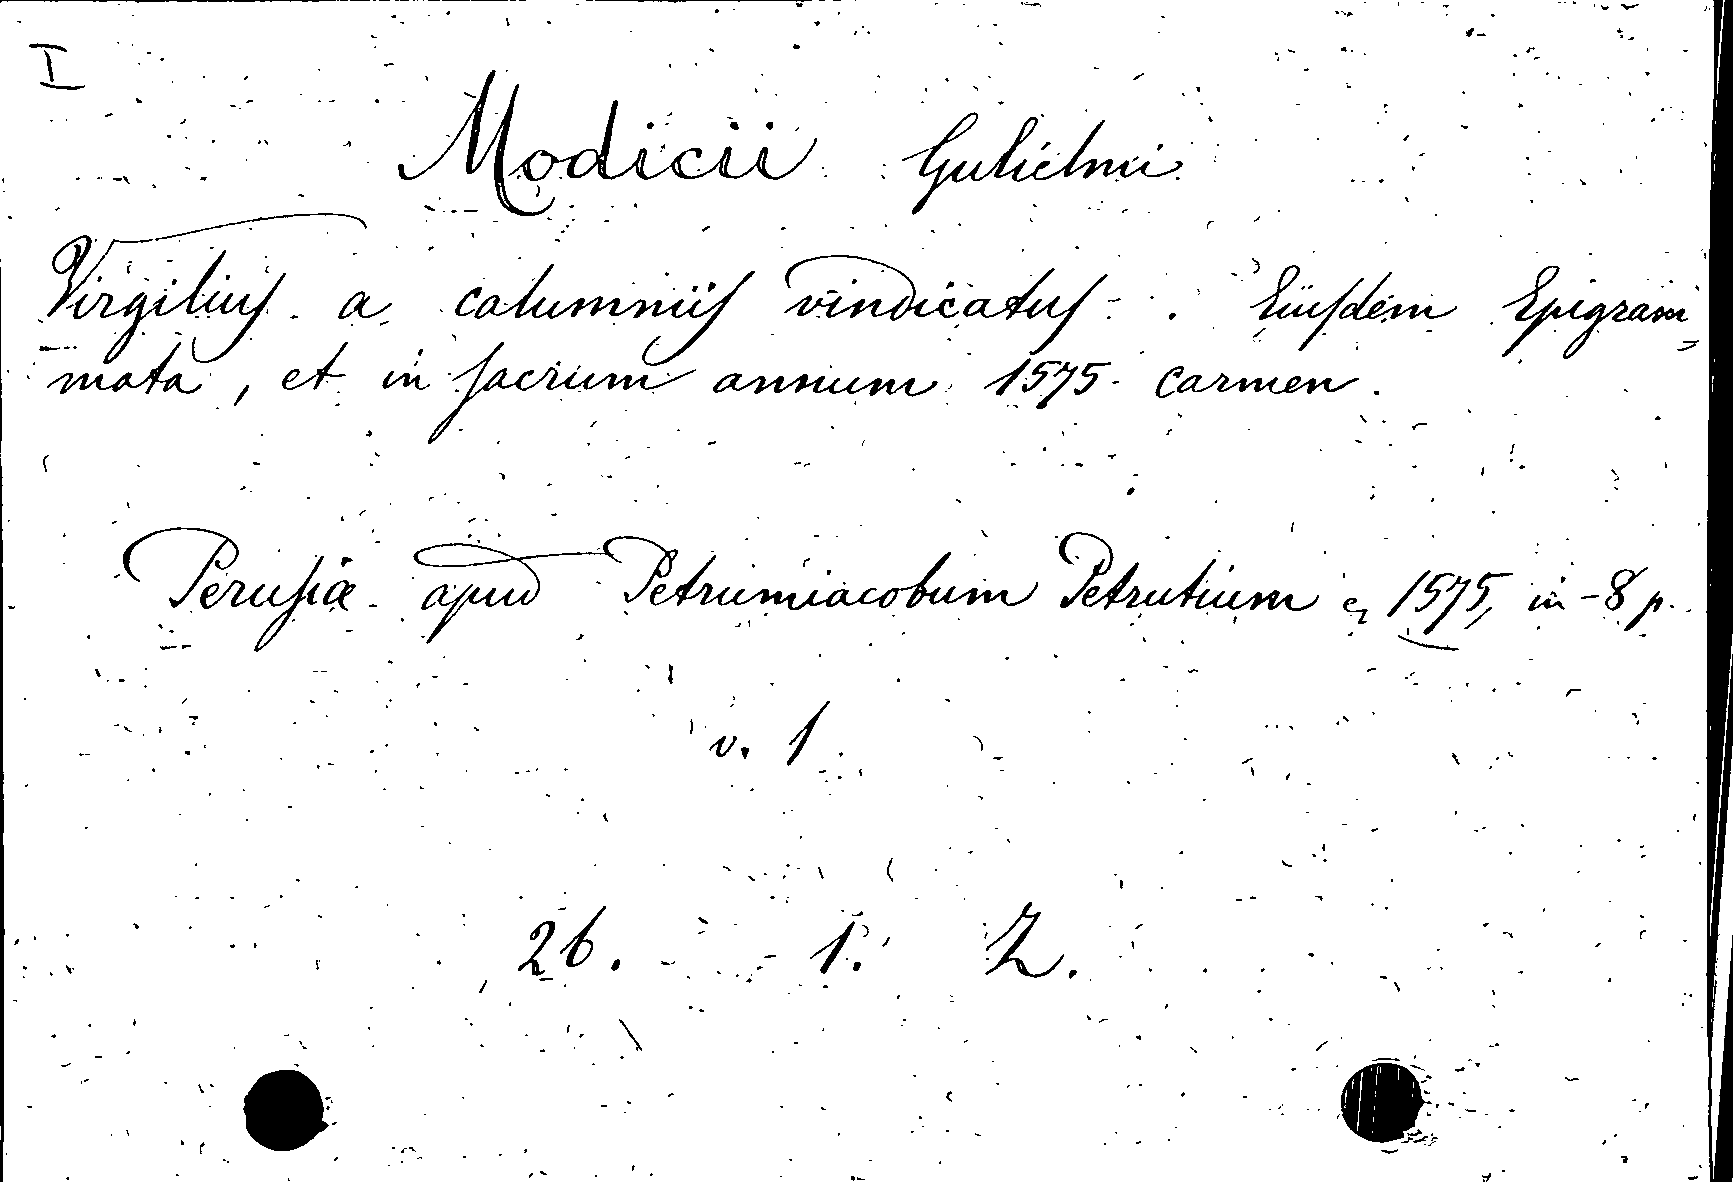 I
Modicii Gulielmi
Virgilius a calumniis vindicatus. Eiusdem Epigram=
mata, et in sacrum annum 1575 carmen.
Perusiæ apud Petrumiacobum Petrutium 1575, in-8 p.
v. 1
26. 1. Z.